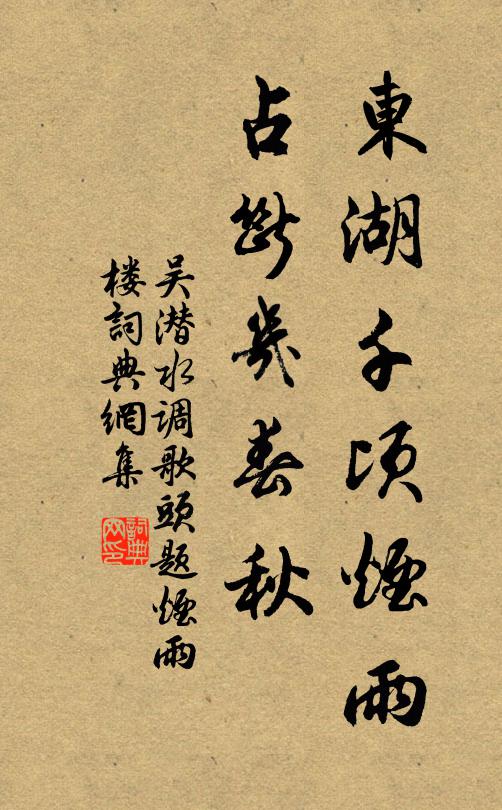 東湖千頃煙雨
占斷幾春秋
吴潜水调歌頭题煙雨
楼詞典網集
詞典網印